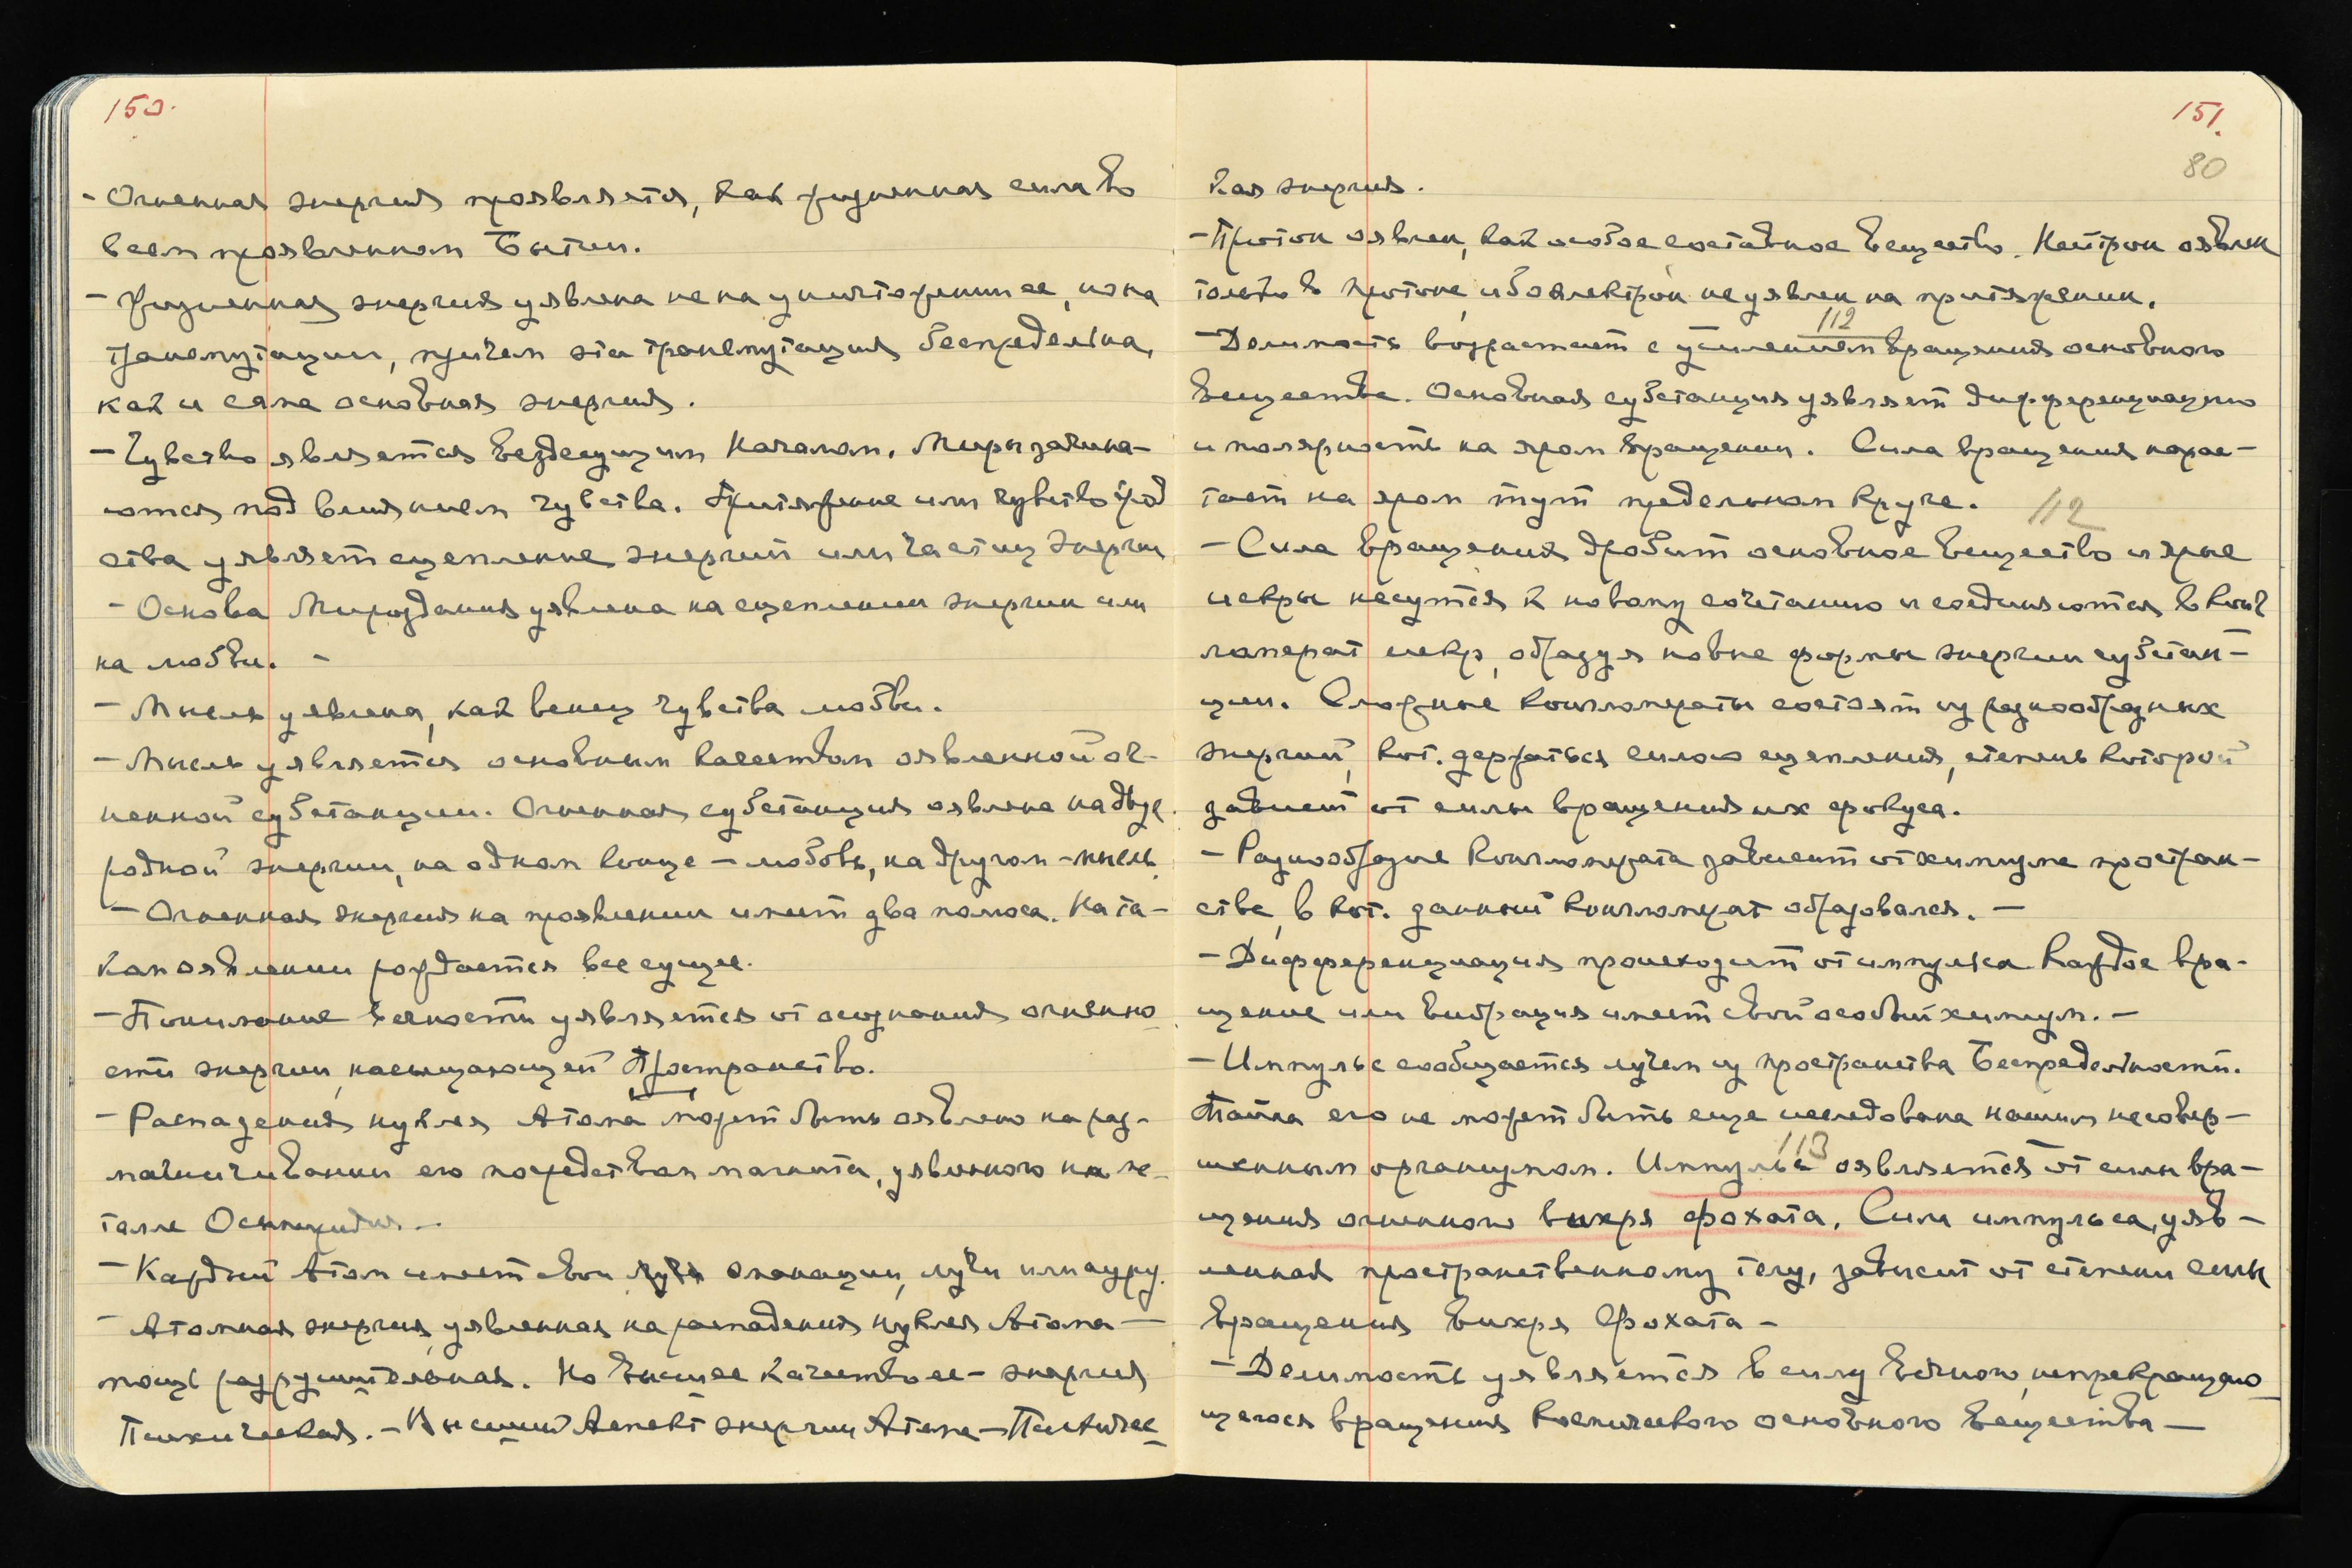 150.
- Огненная энергия проявляется, как жизненная сила во
всем проявленном Бытии.
- Жизненная энергия уявлена не на уничтожении ее, но на
трансмутации, причем эта трансмутация беспредельна,
как и сама основная энергия.
- Чувство является Вездесущим Началом. Миры зачина-
ются под влиянием чувства. Притяжение или чувство срод
ства уявляет сцепление энергий или частиц Энергии
- Основа Мироздания уявлена на сцеплении энергии или
на любви. -
- Мысль уявлена, как венец чувства любви.
- Мысль уявляется основным качеством оявленной ог-
ненной субстанции. Огненная субстанция оявлена на двуе
родной энергии, на одном конце - любовь, на другом - мысль.
- Огненная энергия на проявлении имеет два полюса. На та-
ком оявлении рождается все сущее.
- Понимание вечности уявляется от осознания огненно
сти энергии, насыщающей Пространство.
- Распадения нуклея Атома может быть оявлено на раз-
магничивании его посредством магнита, уявленного на ме-
талле
- Каждый Атом имеет свои лучи эманации, лучи или ауру.
- Атомная энергия, уявленная на распадения нуклея Атома -
мощь разрушительная. Но Высшее качество ее - энергия
Психическая. - Высший Аспект энергии Атома - Психичес
151.
80
кая энергия.
- Протон оявлен, как особое составное Вещество. Нейтрон оявлен
только в протоне, ибо электрон не уявлен на притяжении.
112
- Делимость возрастает с усилением вращения основного
Вещества. Основная субстанция уявляет дифференциацию
и полярность на яром вращении. Сила вращения нарас-
тает на яром тут предельном круге. 112
- Сила вращения дробит основное Вещество и ярые
искры несутся к новому сочетанию и соединяются в конг
ломерат искр, образуя новые формы энергии субстан-
ции. Сложные конгломераты состоят из разнообразных
энергий, кот. держаться силою сцепления, степень которой
зависит от силы вращения их фокуса.
- Разнообразие конгломерата зависит от химизма простран-
ства, в кот. данный конгломерат образовался. -
- Дифференциация происходит от импульса. Каждое вра-
щение или вибрация имеет свой особый химизм. -
- Импульс сообщается лучем из пространства Беспредельности.
Тайна его не может быть еще исследована нашим несовер-
113
шенным организмом. Импульс оявляется от силы вра-
щения огненного вихря фохата. Сила импульса, уяв-
ленная пространственному телу, зависит от степени силы
вращения вихря Фохата -
- Делимость уявляется в силу Вечного, непрекращаю
щегося вращения Космического основного Вещества -